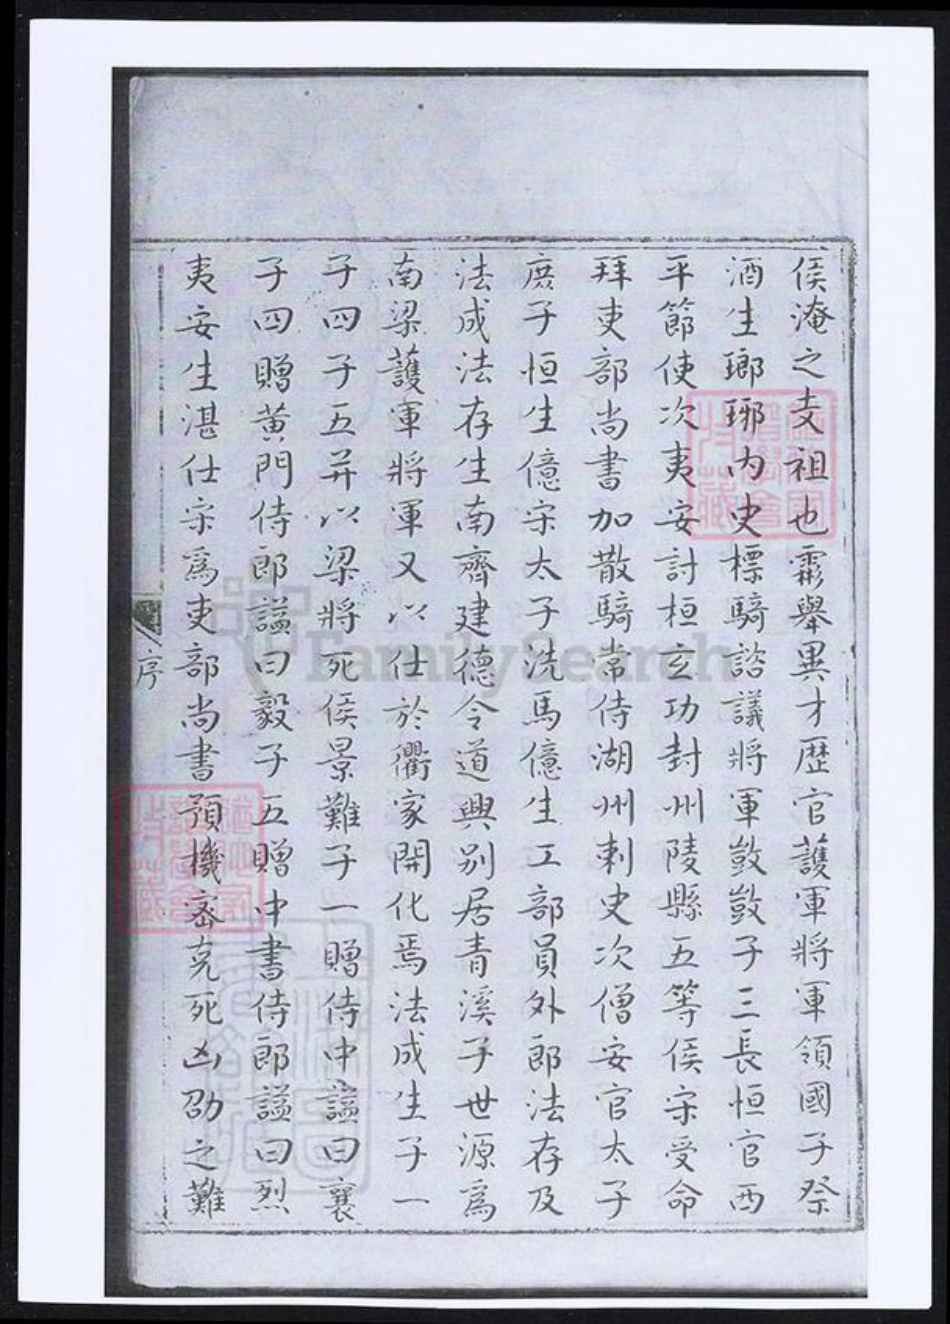 侯淹之支祖也霦舉異才歷官護軍將軍領國子祭
酒生瑯琊內史標騎諮議將軍敳敳子三長恒官西
平節使次夷安討桓玄功封州陵縣五等侯宋受命
拜吏部尚書加散騎常侍湖州刺史次僧安官太子
庶子恒生億宋太子洗馬億生工部員外郎法存及
法成法存生南齊建德令道興別居青溪子世源為
南梁護軍將軍又以仕於衢家開化焉法成生子一
子四子五并以梁將死侯景難子一贈侍中謚曰襄
子四贈黃門侍郎謚曰毅子五贈中書侍郎謚曰烈
夷安生湛仕宋為吏部尚書預機密克死凶劭之難
序
FamilySearch